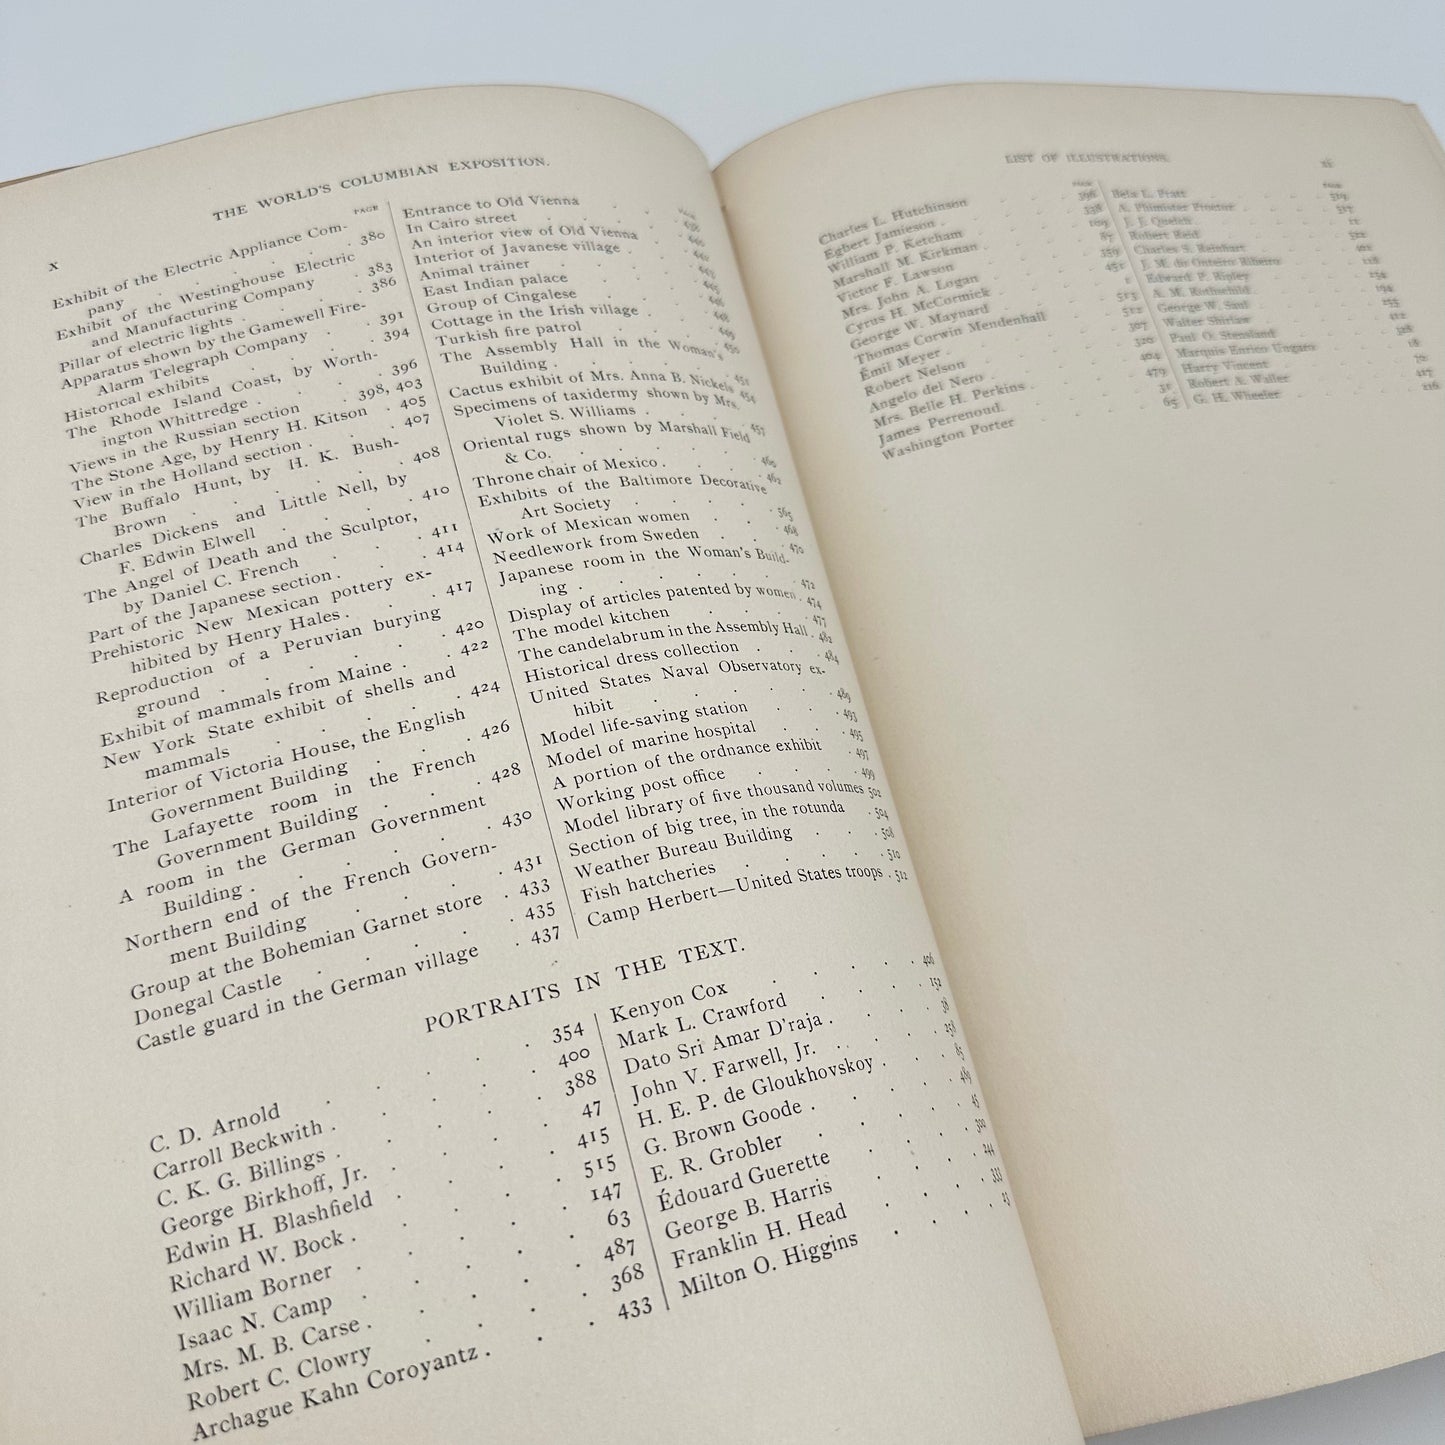 x
THE WORLD'S COLUMBIAN EXPOSITION.
PAGE
Exhibit of the Electric Appliance Com-
pany . . . . . 380
Exhibit of the Westinghouse Electric
and Manufacturing Company . 383
Pillar of electric lights . . . 386
Apparatus shown by the Gamewell Fire-
Alarm Telegraph Company . 391
Historical exhibits . . . . 394
The Rhode Island Coast, by Worth-
ington Whittredge . . . . 396
Views in the Russian section . 398, 403
The Stone Age, by Henry H. Kitson . 405
View in the Holland section . . . 407
The Buffalo Hunt, by H. K. Bush-
Brown . . . . . 408
Charles Dickens and Little Nell, by
F. Edwin Elwell . . . . 410
The Angel of Death and the Sculptor,
by Daniel C. French . . . 411
Part of the Japanese section . . . 414
Prehistoric New Mexican pottery ex-
hibited by Henry Hales . . . 417
Reproduction of a Peruvian burying
ground . . . . . 420
Exhibit of mammals from Maine . . 422
New York State exhibit of shells and
mammals . . . . . 424
Interior of Victoria House, the English
Government Building . . . 426
The Lafayette room in the French
Government Building . . . 428
A room in the German Government
Building . . . . . 430
Northern end of the French Govern-
ment Building . . . . 431
Group at the Bohemian Garnet store . 433
Donegal Castle . . . . 435
Castle guard in the German village . 437
Entrance to Old Vienna
In Cairo street
An interior view of Old Vienna
Interior of Javanese village
Animal trainer
East Indian palace
Group of Cingalese
Cottage in the Irish village
Turkish fire patrol
The Assembly Hall in the Woman's
Building
Cactus exhibit of Mrs. Anna B. Nickels
Specimens of taxidermy shown by Mrs.
Violet S. Williams
Oriental rugs shown by Marshall Field
& Co.
Throne chair of Mexico
Exhibits of the Baltimore Decorative
Art Society
Work of Mexican women
Needlework from Sweden
Japanese room in the Woman's Build-
ing . . . . . 470
Display of articles patented by women . 472
The model kitchen . . . 474
The candelabrum in the Assembly Hall . 477
Historical dress collection . . 482
United States Naval Observatory ex-
hibit . . . . . 484
Model life-saving station . . . 489
Model of marine hospital . . . 493
A portion of the ordnance exhibit . 495
Working post office . . . 497
Model library of five thousand volumes 499
Section of big tree, in the rotunda . 502
Weather Bureau Building . . . 504
Fish hatcheries . . . . 508
Camp Herbert—United States troops . 512
PORTRAITS IN THE TEXT.
C. D. Arnold . . . . . 354
Carroll Beckwith . . . . . 400
C. K. G. Billings . . . . . 388
George Birkhoff, Jr. . . . . 47
Edwin H. Blashfield . . . . 415
Richard W. Bock . . . . . 515
William Borner . . . . . 147
Isaac N. Camp . . . . . 63
Mrs. M. B. Carse . . . . . 487
Robert C. Clowry . . . . . 368
Archague Kahn Coroyantz . . . 433
Kenyon Cox . . . . . 406
Mark L. Crawford . . . . 152
Dato Sri Amar D'raja . . . . 38
John V. Farwell, Jr. . . . . 258
H. E. P. de Gloukhovskoy . . . 85
G. Brown Goode . . . . . 489
E. R. Grobler . . . . . 45
Édouard Guerette
George B. Harris . . . . 244
Franklin H. Head . . . . 333
Milton O. Higgins
LIST OF ILLUSTRATIONS.
xi
Charles L. Hutchinson
Egbert Jamieson
William P. Ketcham
Marshall M. Kirkman
Victor F. Lawson
Mrs. John A. Logan
Cyrus H. McCormick
George W. Maynard
Thomas Corwin Mendenhall
Émil Meyer
Robert Nelson
Angelo del Nero
Mrs. Belle H. Perkins
James Perrenoud
Washington Porter
Bela L. Pratt
A. Phimister Proctor
J. J. Quelch
Robert Reid
Charles S. Reinhart
J. M. de Onteiro Ribeiro
Edward P. Ripley
A. M. Rothschild
George W. Saul
Walter Shirlaw
Paul O. Stensland
Marquis Enrico Ungaro
Harry Vincent
Robert A. Waller
G. H. Wheeler